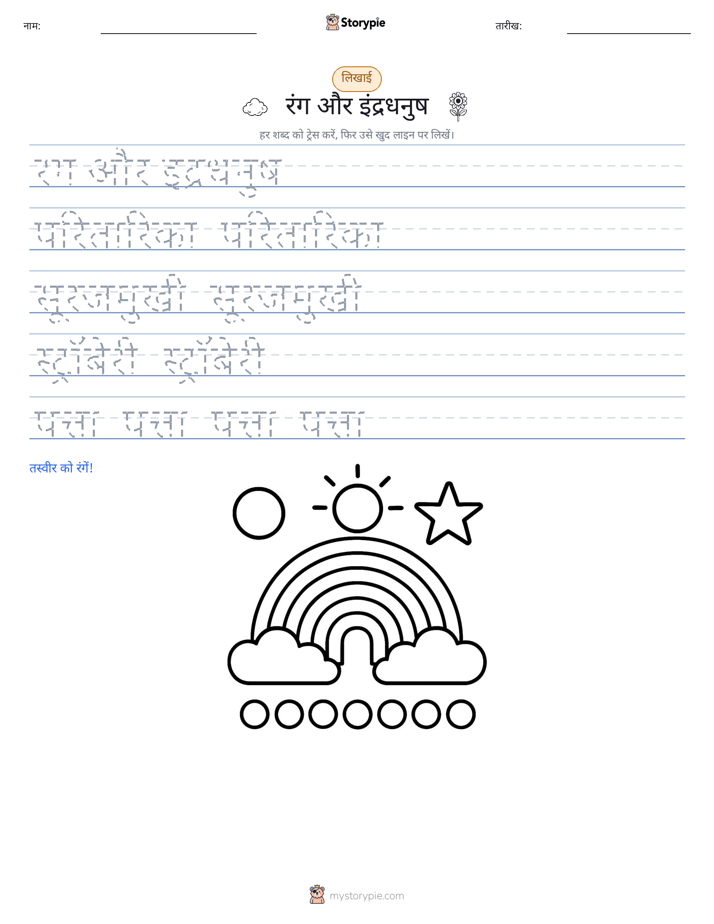 नाम: Storypie तारीख:
लिखाई
रंग और इंद्रधनुष
हर शब्द को ट्रेस करें, फिर उसे खुद लाइन पर लिखें।
रंग और इंद्रधनुष
परितारिका परितारिका
सूरजमुखी सूरजमुखी
स्ट्रॉबेरी स्ट्रॉबेरी
पत्ता पत्ता पत्ता पत्ता
तस्वीर को रंगें!
mystorypie.com